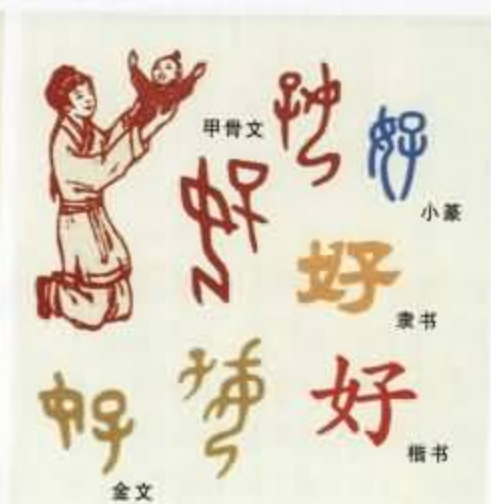 甲骨文
好
好
好
小篆
好
隶书
好
好
好
楷书
金文